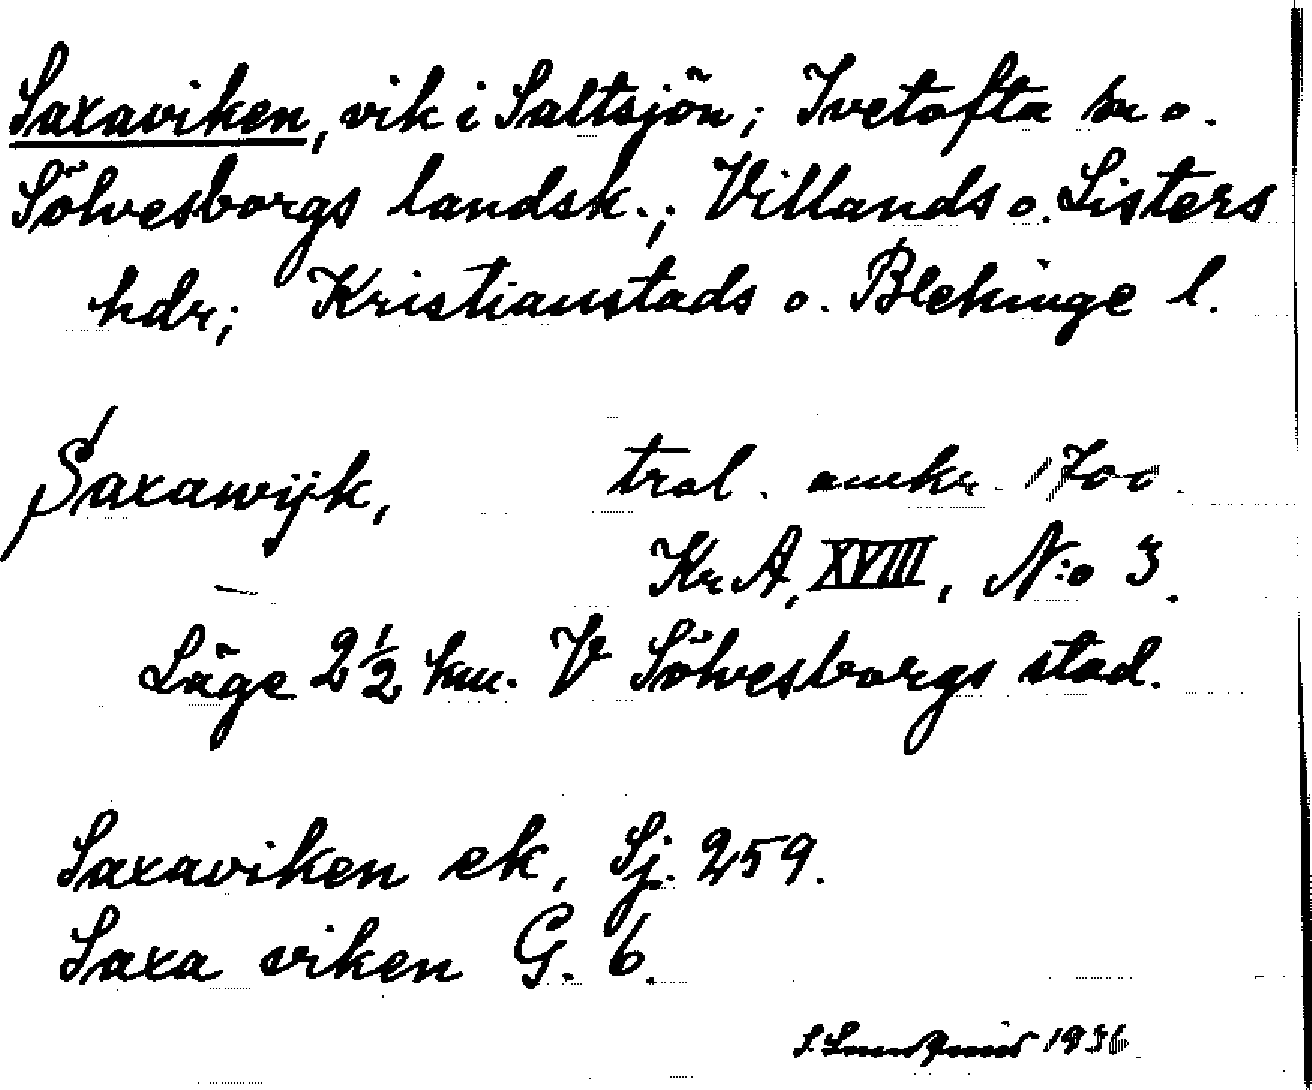 Saxaviken, vik i Saltsjön; Ivetofta sn o.
Sölvesborgs landsk.; Villands o. Listers
hdr; Kristianstads o. Blekinge l.
Saxawijk, trol. omkr. 1700.
Kr. A, XVIII, N:o 3.
Läge 2½ km. V Sölvesborgs stad.
Saxaviken ek, Sj. 259.
Saxa viken G. 6.
1936